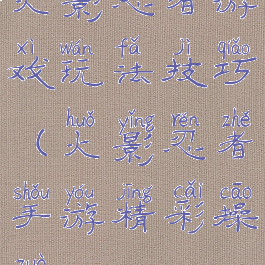 火影忍者游
xì wán fǎ jì qiǎo
戏玩法技巧
huǒ yǐng rěn zhě
（火影忍者
shǒu yóu jīng cǎi cāo
手游精彩操
zuò